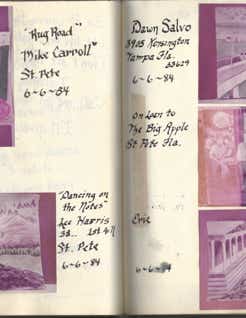 "Rug Road"
Mike Carroll
St. Pete
6-6-84
"Dancing on
the Notes"
Lee Harris
1st
St. Pete
6-6-84
Dawn Salvo
3905 Kensington
Tampa Fla.
33629
6-6-84
on Loan to
The Big Apple
St Pete Fla.
Erie
6-6-84